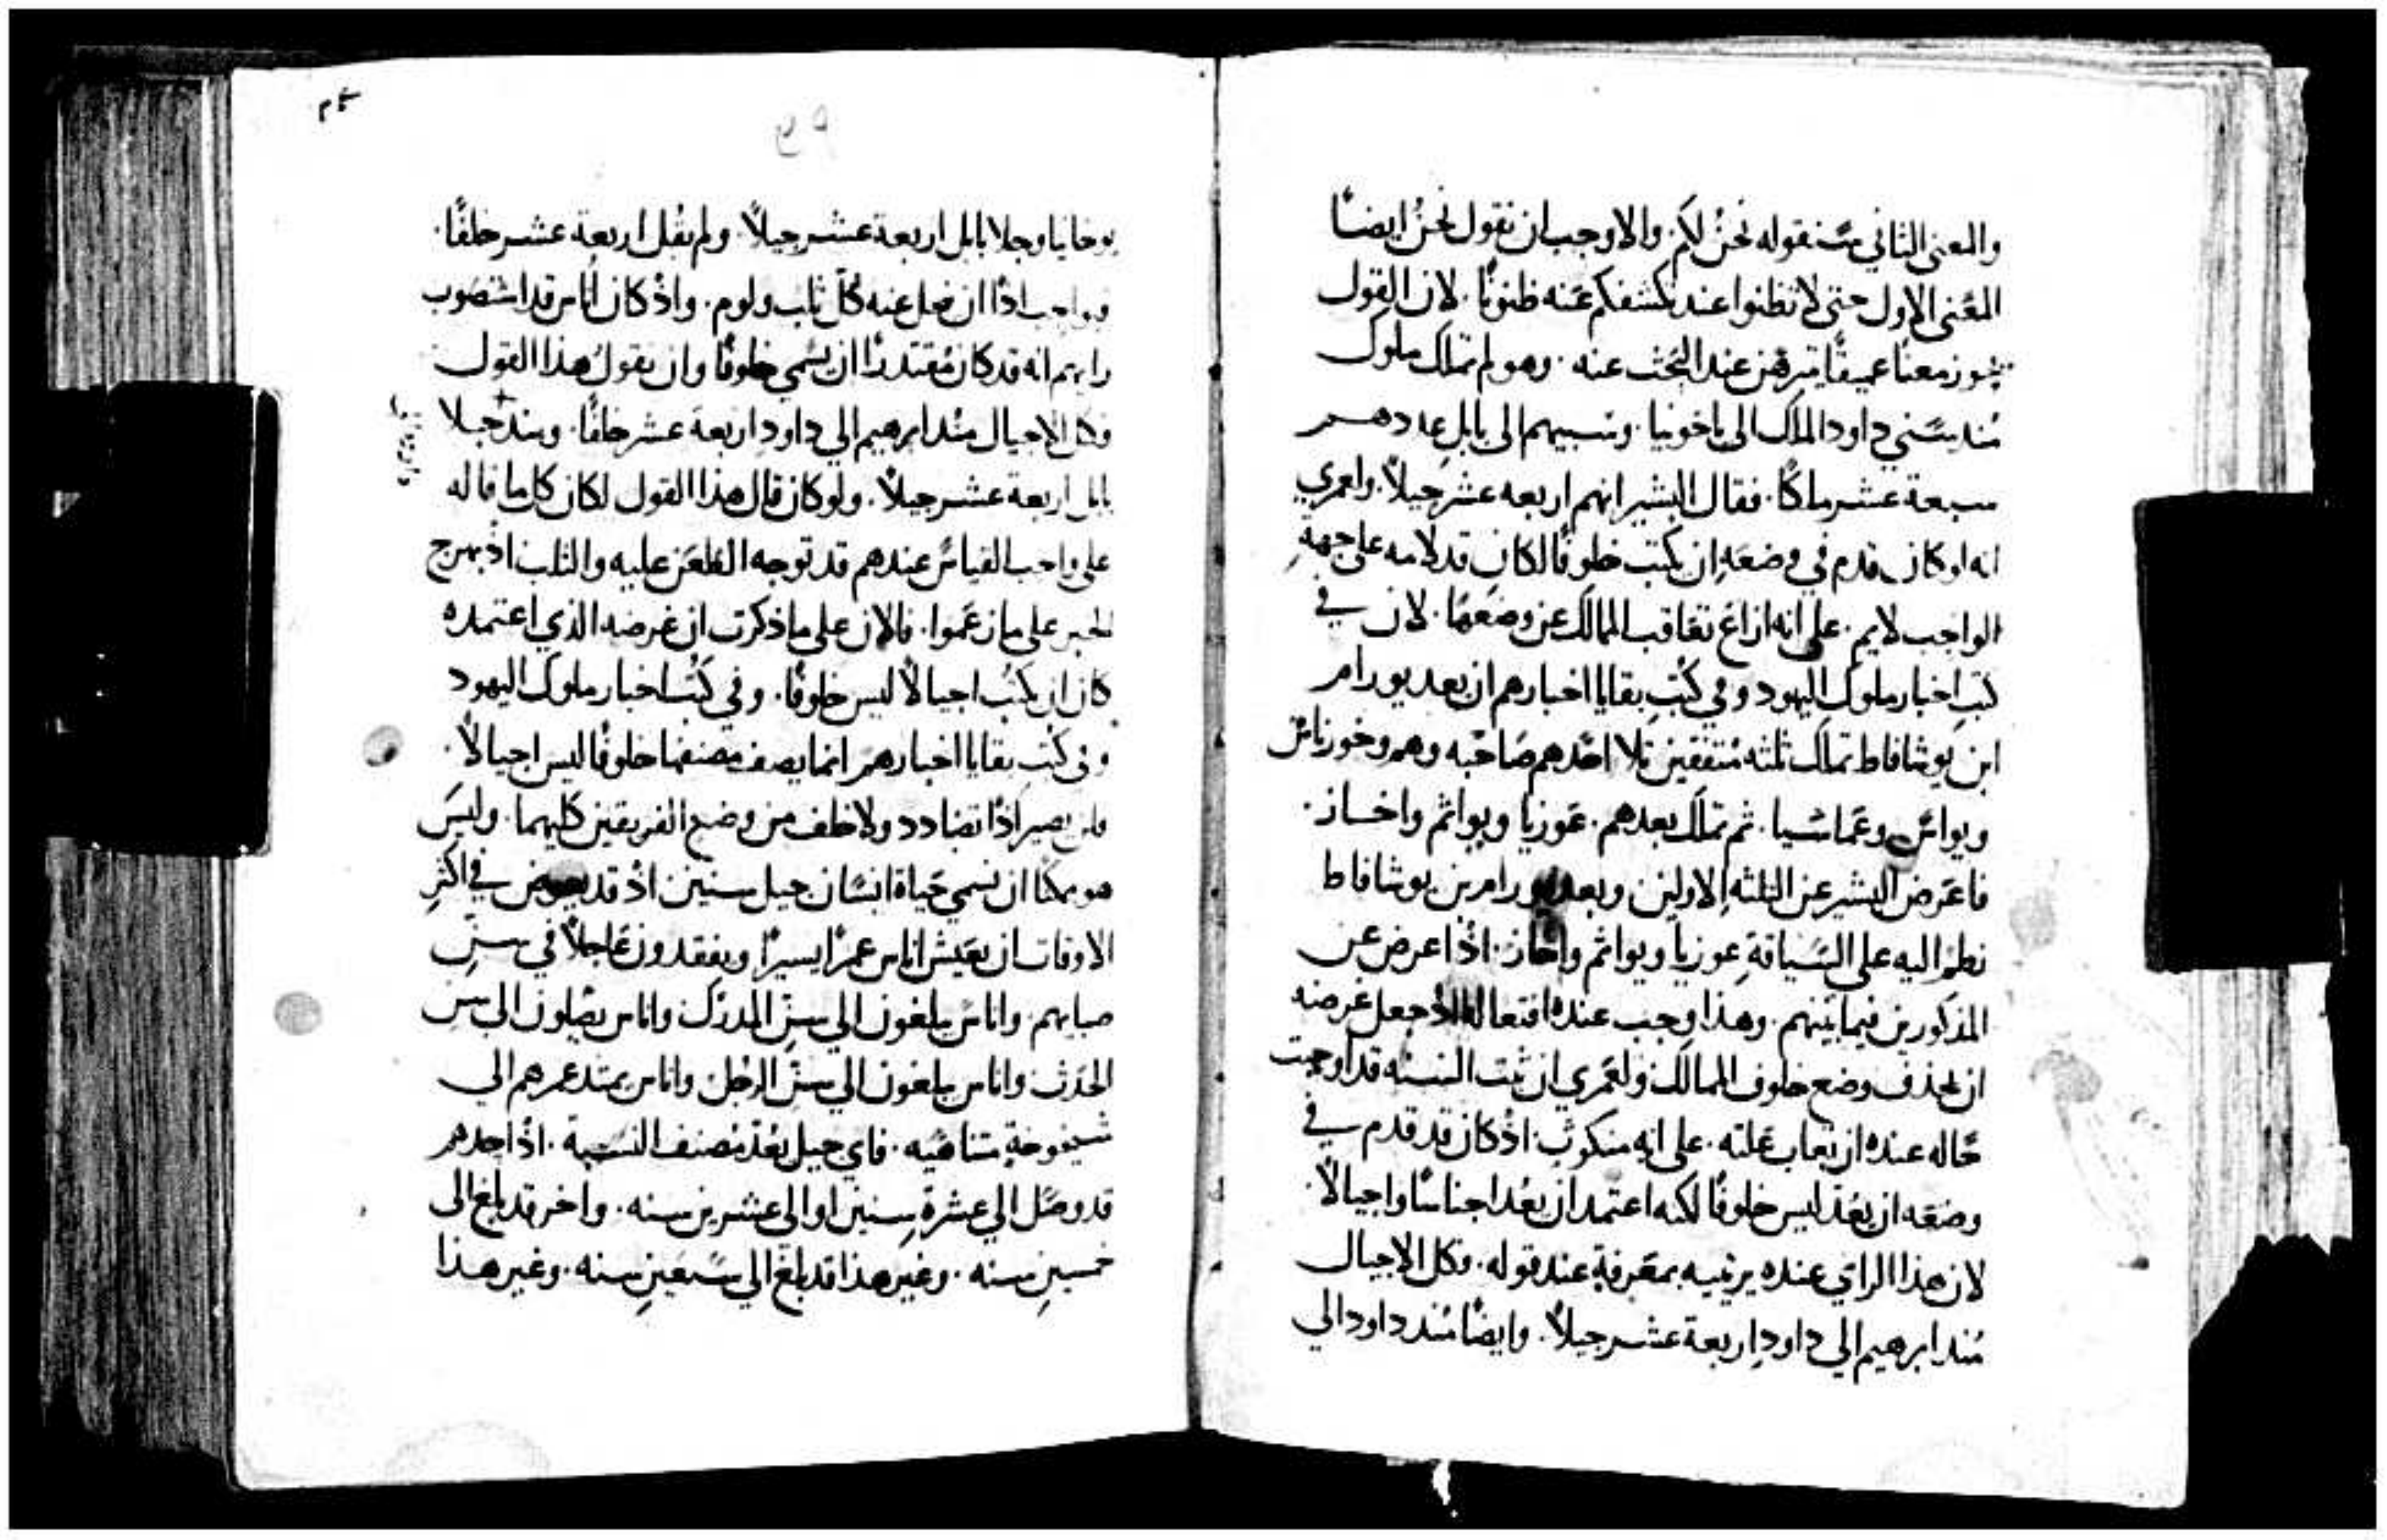 والمعنى الثاني سنقوله نحن لكم. والاوجب ان نقول نحن ايضًا
المعنى الاول حتى لا تظنوا عند تكشفكم عنه ظنونًا. لان القول
يحوز معنًا عميقًا يتبرهن عند البحث عنه. وهو لم تملك ملوك
منذ سني داود الملك الى ياخونيا. وسبيهم الى بابل عددهم
سبعة عشر ملكًا. فقال البشير انهم اربعه عشر جيلاً. ولعمري
انه لو كان قدم في وضعه ان يكتب خلوفًا لكان قد لامه على جهة
الواجب لايم. على انه ازاغ تعاقب الممالك عن وضعها. لان في
كتب اخبار ملوك اليهود وفي كتب بقايا اخبارهم ان بعد يورام
ابن يوشافاط تملك ثلثه متفقين تلا احدهم صاحبه وهم وخوزياس
ويواس وعماسيا. ثم تملك بعدهم. عوزيا ويواثم واخاز.
فاعرض البشير عن الثلثه الاولين وبعد يورام بن يوشافاط
نظم اليه على السياقة عوزيا ويواثم واخاز. اذ اعرض عن
المذكورين فيما بينهم. وهذا وجب عنده افتعاله اذ جعل غرضه
ان يحذف وضع خلوف الممالك ولعمري ان ثبت النسبه قد اوجبت
حاله عنده ان تعاب علته. على انه منكوث. اذ كان قد قدم في
وضعه ان يعد ليس خلوفًا لكنه اعتمد ان يعد اجناسًا واجيالاً.
لان هذا الراي عنده يرتبيه بمعرفة عند قوله. وكل الاجيال
منذ ابرهيم الى داود اربعة عشر جيلاً. وايضًا منذ داود الي
٤٩
يوخانيا وجلا بابل اربعة عشر جيلاً. ولم يقل اربعة عشر خلفًا.
فواجب اذًا ان فعل عنه كل ثلب ولوم. واذ كان اناس قد استصوب
رايهم انه قد كان مقتدرًا ان يسمي خلوفًا وان يقول هذا القول
فكل الاجيال منذ ابرهيم الي داود اربعة عشر خلفًا. ومنذ جلا
بابل اربعة عشر جيلاً. ولو كان قال هذا القول لكان كلما قاله
على واجب القياس عندهم قد توجه الطعن عليه والثلب اذ بهرج
الخبر على ما زعموا. فالان على ما ذكرت ان غرضه الذي اعتمده
كان ان يكتب اجيالاً ليس خلوفًا. وفي كتب اخبار ملوك اليهود
وفي كتب بقايا اخبارهم انما يصف مصنفها خلوفًا ليس اجيالاً.
فلن يصير اذًا تضادد ولا خلف من وضع الفريقين كليهما. وليس
هو ممكنًا ان نسمي حياة انسان جيل سنين اذ قد يعرض في اكثر
الاوقات ان يعيش اناس عمرًا يسيرًا ويفقدون عاجلاً في سن
صبايهم. واناس يبلغون الي سن المدرك واناس يصلون الي سن
الحدث واناس يبلغون الي سن الرجل واناس يمتد عمرهم الي
شيخوخة متناهيه. فاي جيل يعد مصنف النسبة. اذ احدهم
قد وصل الي عشرة سنين او الى عشرين سنه. واخر قد بلغ الى
خمسين سنه. وغير هذا قد بلغ الي سبعين سنه. وغير هذا